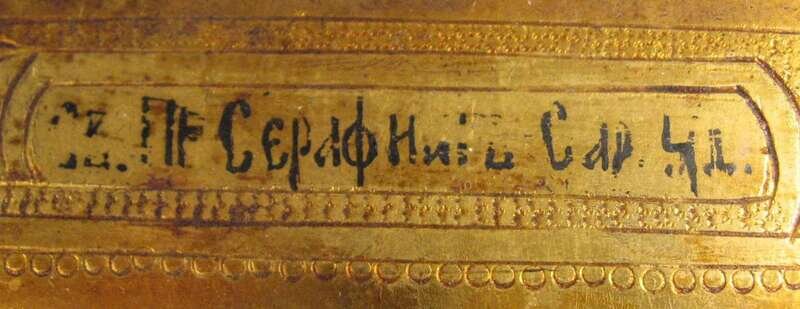 Св. Пр Серафимъ Сар. Чд.